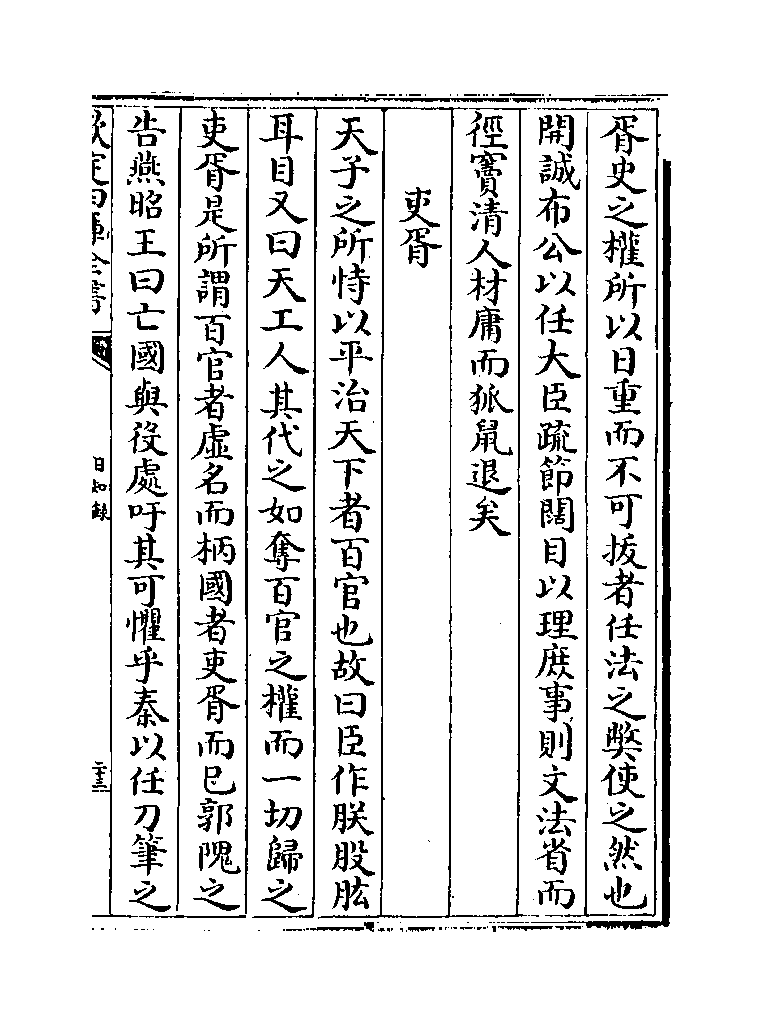 胥史之權所以日重而不可拔者任法之弊使之然也
開誠布公以任大臣疏節闊目以理庶事則文法省而
徑竇清人材庸而狐鼠退矣
吏胥
天子之所恃以平治天下者百官也故曰臣作朕股肱
耳目又曰天工人其代之如奪百官之權而一切歸之
吏胥是所謂百官者虛名而柄國者吏胥而已郭隗之
告燕昭王曰亡國與役處吁其可懼乎秦以任刀筆之
欽定四庫全書
日知錄